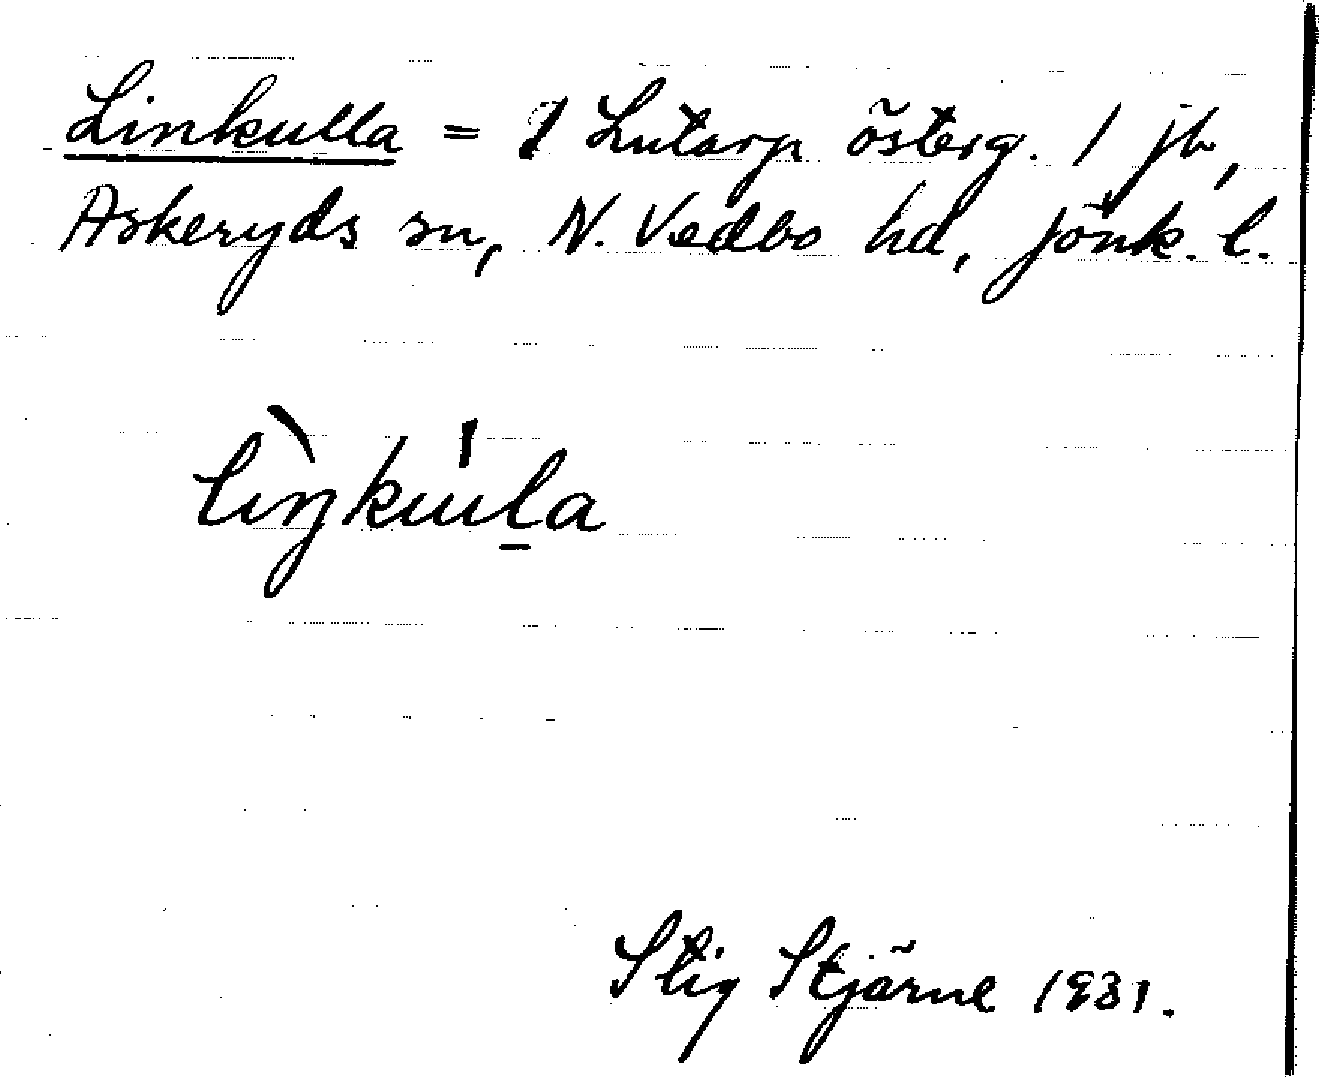 Linkulla = 1 Lutarp österg. 1 jb,
Askeryds sn, N. Vedbo hd, Jönk. l.
lìŋkúl̲a
Stig Stjärne 1931.